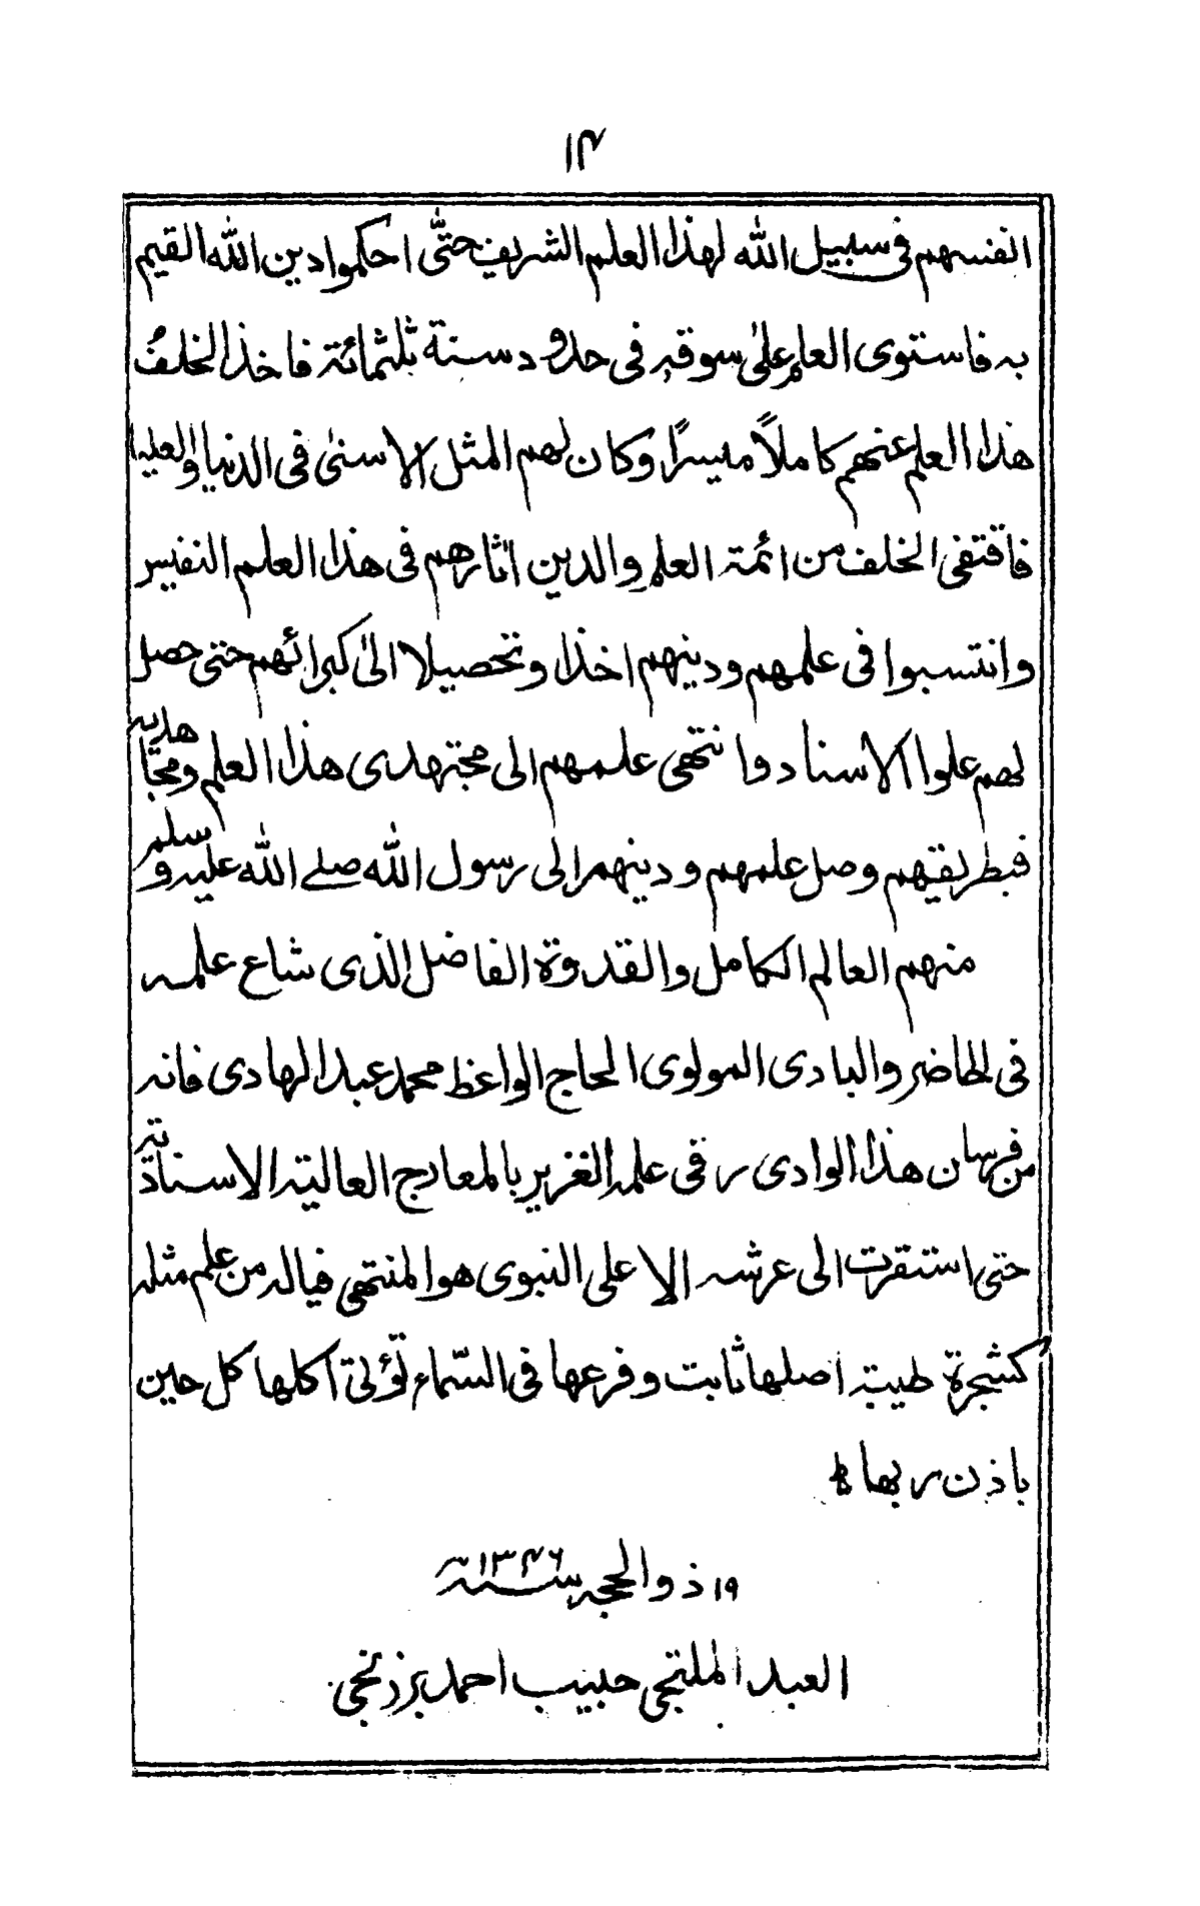 ١٤
انفسهم فى سبيل الله لهذا العلم الشريف حتّٰى احكموا دين الله القيم
به فاستوى العلم علىٰ سوقه فى حدود سنة ثلثمائة فاخذ الخلفُ
هذا العلم عنهم كاملاً ميسرًا وكان لهم المثل الاسنىٰ فى الدنيا والعليا
فاقتفى الخلف من ائمة العلم والدين اٰثارهم فى هذا العلم النفيس
وانتسبوا فى علمهم ودينهم اخذا وتحصيلا الىٰ كبرائهم حتى حصل
لهم علوا الاسناد وانتهى علمهم الى مجتهدى هذا العلم ومجاهديه
فبطريقهم وصل علمهم ودينهم الى رسول الله صلے الله عليه وسلم
منهم العالم الكامل والقدوة الفاضل الذى شاع علمه
فى الحاضر والبادى المولوى الحاج الواعظ محمد عبد الهادى فانه
من فرسان هذا الوادى رقى علمه الغزير بالمعارج العالية الاسنادية
حتى استقرت الى عرشه الاعلى النبوى هو المنتهى فياله من علم مثله
كشجرة طيبة اصلها ثابت وفرعها فى السّماء تؤتى اكلها كل حين
باذن ربها ط
١٩ ذو الحجه سنة ١٣٤٦
العبد الملتجى حبيب احمد برزنجى